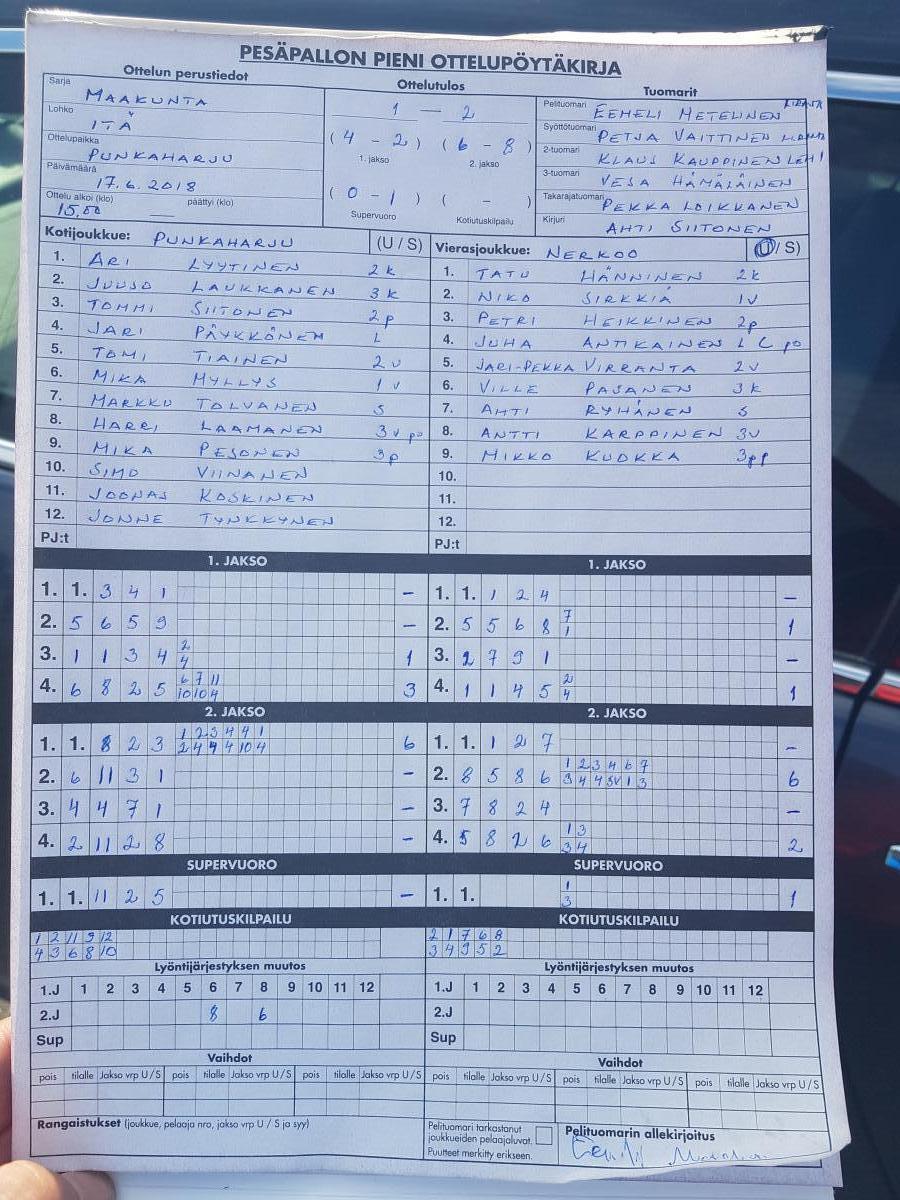 PESÄPALLON PIENI OTTELUPÖYTÄKIRJA
Ottelun perustiedot
Sarja MAAKUNTA
Lohko ITÄ
Ottelupaikka PUNKAHARJU
Päivämäärä 17.6.2018
Ottelu alkoi (klo) 15.00 päättyi (klo)
Ottelutulos
1 — 2
(4 - 2) (6 - 8)
1. jakso 2. jakso
(0 - 1) ( - )
Supervuoro Kotiutuskilpailu
Tuomarit
Pelituomari EEMELI METELINEN
Syöttötuomari PETJA VAITTINEN
2-tuomari KLAUS KAUPPINEN
3-tuomari VESA HÄMÄLÄINEN
Takarajatuomari PEKKA LOIKKANEN
Kirjuri AHTI SIITONEN
Kotijoukkue: PUNKAHARJU (U / S)
1. ARI LYYTINEN 2k
2. JUUSO LAUKKANEN 3k
3. TOMMI SIITONEN 2p
4. JARI PÄYKKÖNEN L
5. TOMI TIAINEN 2v
6. MIKA MYLLYS 1v
7. MARKKU TOLVANEN S
8. HARRI LAAMANEN 3v po
9. MIKA PESONEN 3p
10. SIMO VIINANEN
11. JOONAS KOSKINEN
12. JONNE TYNKKYNEN
PJ:t
Vierasjoukkue: NERKOO (U / S)
1. TATU HÄNNINEN 2k
2. NIKO SIRKKIÄ 1v
3. PETRI HEIKKINEN 2p
4. JUHA ANTIKAINEN L C po
5. JARI-PEKKA VIRRANTA 2v
6. VILLE PASANEN 3k
7. AHTI RYHÄNEN S
8. ANTTI KARPPINEN 3v
9. MIKKO KUOKKA 3p
10.
11.
12.
PJ:t
1. JAKSO
1. 1. 3 4 1 –
2. 5 6 5 9 –
2
3. 1 1 3 4 4 1
6 7 11
4. 6 8 2 5 10 10 4 3
2. JAKSO
1 2 3 4 4 1
1. 1. 8 2 3 2 4 4 4 10 4 6
2. 6 11 3 1 –
3. 4 4 7 1 –
4. 2 11 2 8 –
SUPERVUORO
1. 1. 11 2 5 –
KOTIUTUSKILPAILU
1 2 11 9 12
4 3 6 8 10
Lyöntijärjestyksen muutos
1.J 1 2 3 4 5 6 7 8 9 10 11 12
2.J 8 6
Sup
Vaihdot
pois tilalle Jakso vrp U / S pois tilalle Jakso vrp U / S pois tilalle Jakso vrp U / S
Rangaistukset (joukkue, pelaaja nro, jakso vrp U / S ja syy)
1. JAKSO
1. 1. 1 2 4 –
7
2. 5 5 6 8 1 1
3. 2 7 9 1 –
2
4. 1 1 4 5 4 1
2. JAKSO
1. 1. 1 2 7 –
1 2 3 4 6 7
2. 8 5 8 6 3 4 4 1 3 6
3. 7 8 2 4 –
1 3
4. 5 8 2 6 3 4 2
SUPERVUORO
1
1. 1. 3 1
KOTIUTUSKILPAILU
2 1 7 6 8
3 4 9 5 2
Lyöntijärjestyksen muutos
1.J 1 2 3 4 5 6 7 8 9 10 11 12
2.J
Sup
Vaihdot
pois tilalle Jakso vrp U / S pois tilalle Jakso vrp U / S pois tilalle Jakso vrp U / S
Pelituomari tarkastanut
joukkueiden pelaajaluvat.
Puutteet merkitty erikseen.
Pelituomarin allekirjoitus